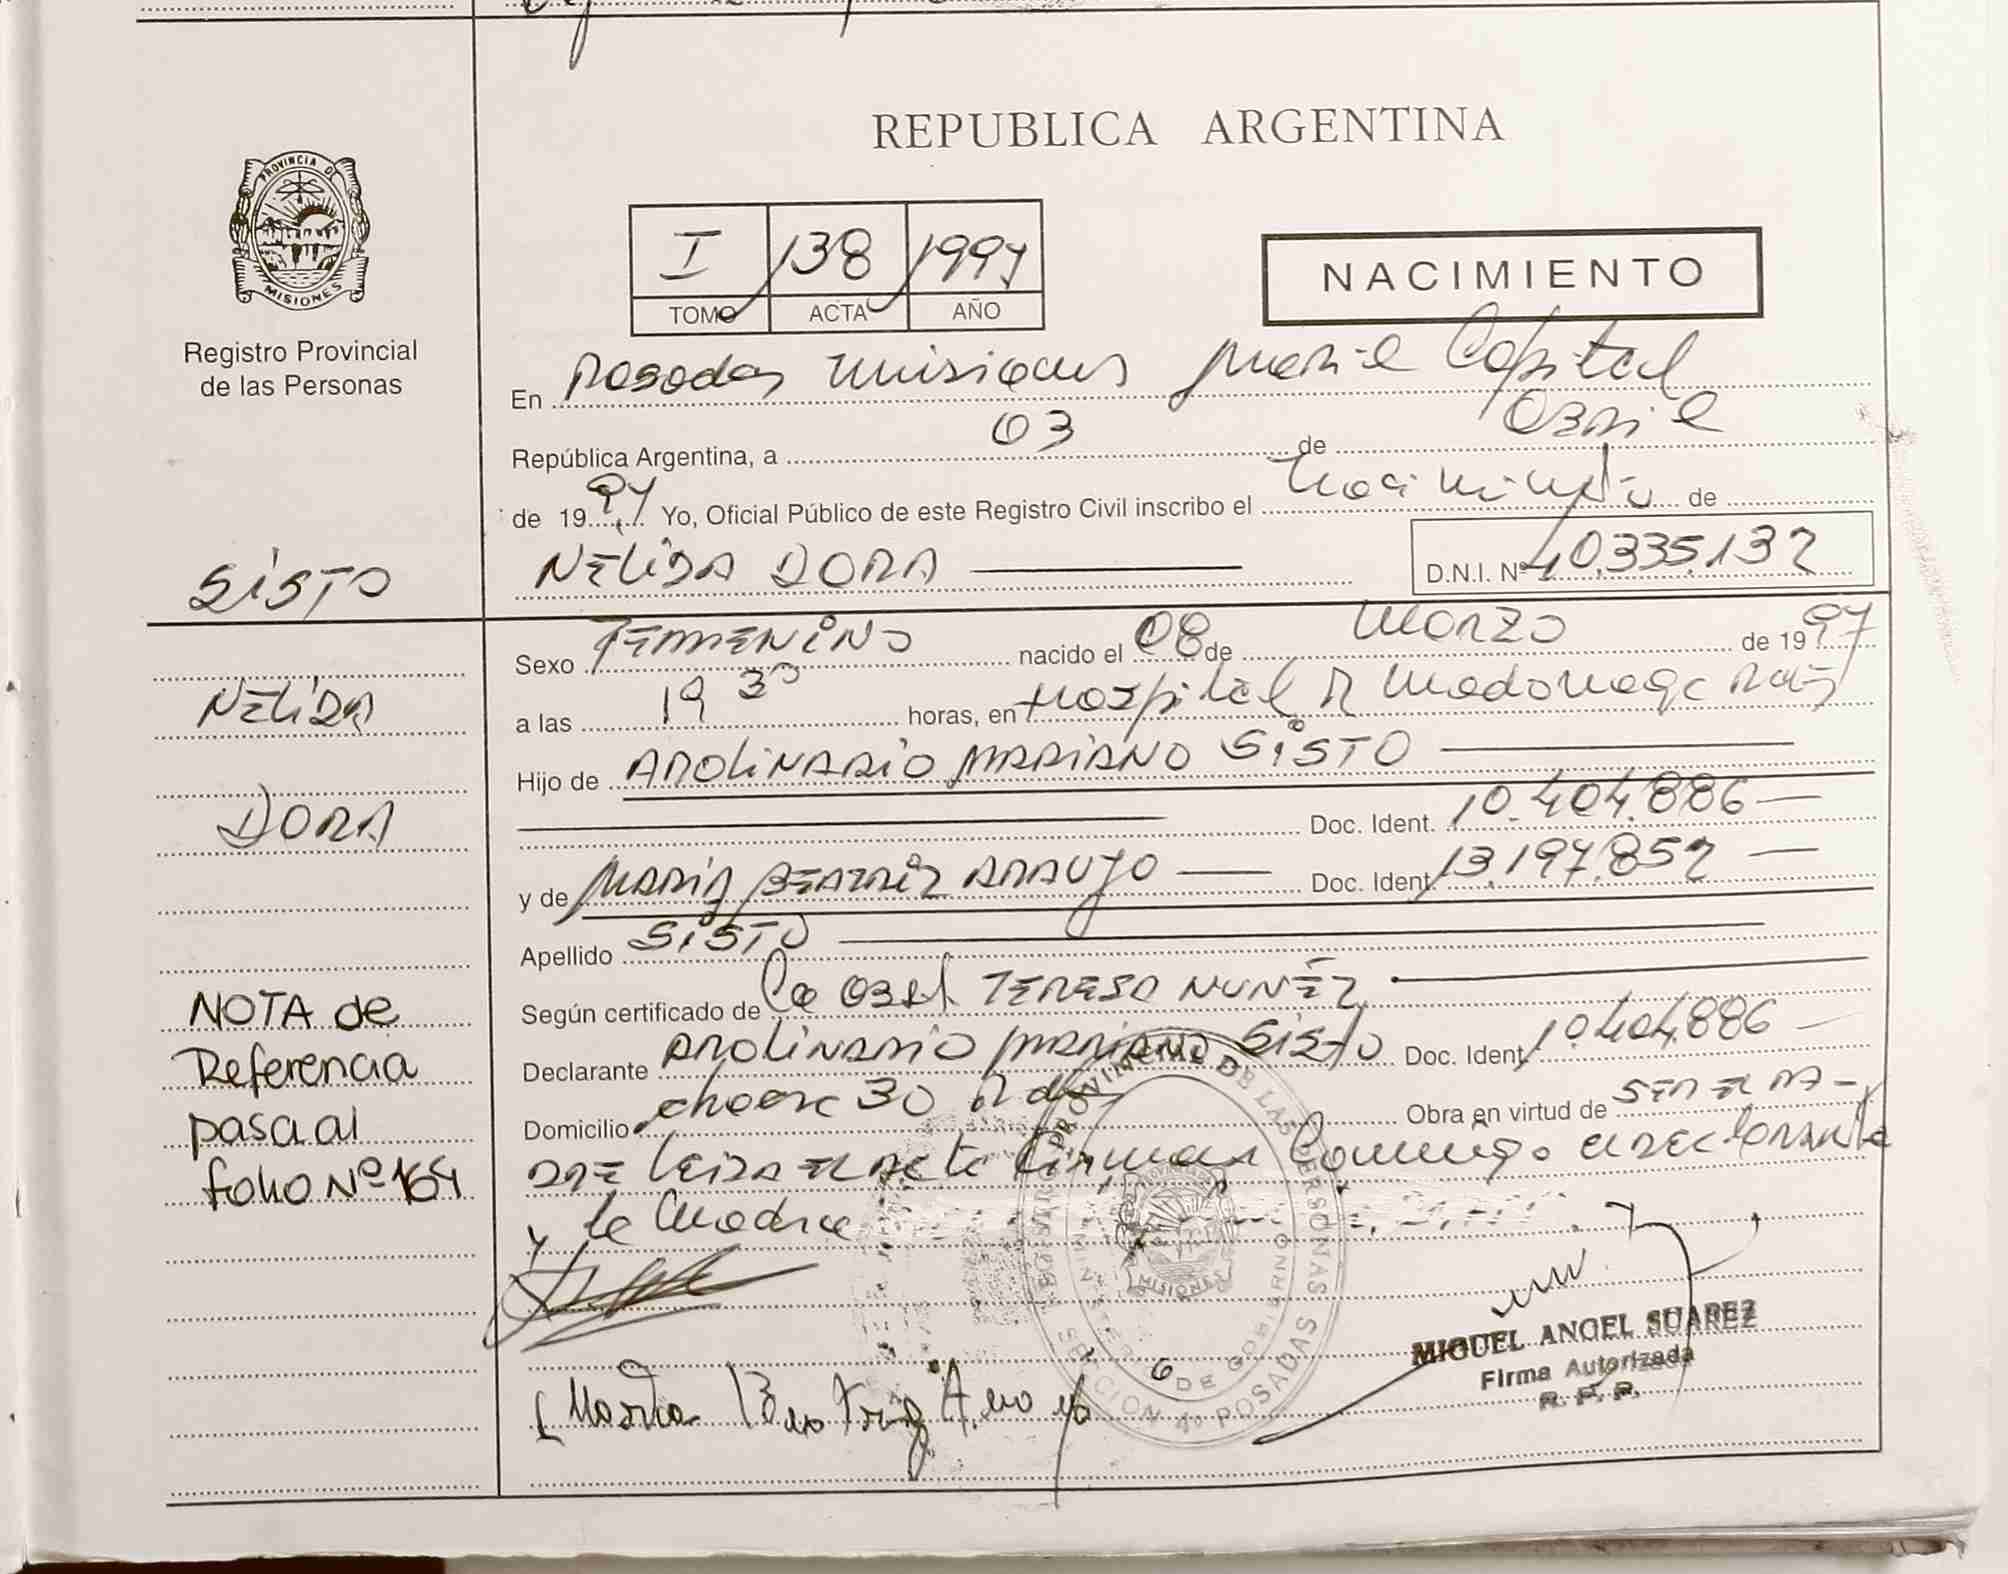 REPUBLICA ARGENTINA
PROVINCIA DE
MISIONES
Registro Provincial
de las Personas
I 138 1997
TOMO ACTA AÑO
NACIMIENTO
En Posadas Misiones Capital
República Argentina, a 03 de Abril
de 1997 Yo, Oficial Público de este Registro Civil inscribo el Nacimiento de
NELIDA DORA D.N.I. Nº 40.335.132
SISTO
NELIDA
DORA
Sexo FEMENINO nacido el 08 de Marzo de 1997
a las 19 30 horas, en Hospital R Madariaga
Hijo de APOLINARIO MARIANO SISTO
Doc. Ident. 10.404.886
y de MARIA BEATRIZ ARAUJO Doc. Ident. 13.197.852
Apellido SISTO
Según certificado de La Obst TERESA NUÑEZ
Declarante APOLINARIO MARIANO SISTO Doc. Ident. 10.404.886
Domicilio chacra 30 Obra en virtud de SER EL PA-
DRE LEIDA EL ACTA Firman Conmigo el DECLARANTE
y la Madre
NOTA de
Referencia
pasa al
folio Nº 164
REGISTRO PROVINCIAL DE LAS PERSONAS
MINISTERIO DE GOBIERNO
MISIONES
SECCION 4º POSADAS
MIGUEL ANGEL SUAREZ
Firma Autorizada
R. P. P.